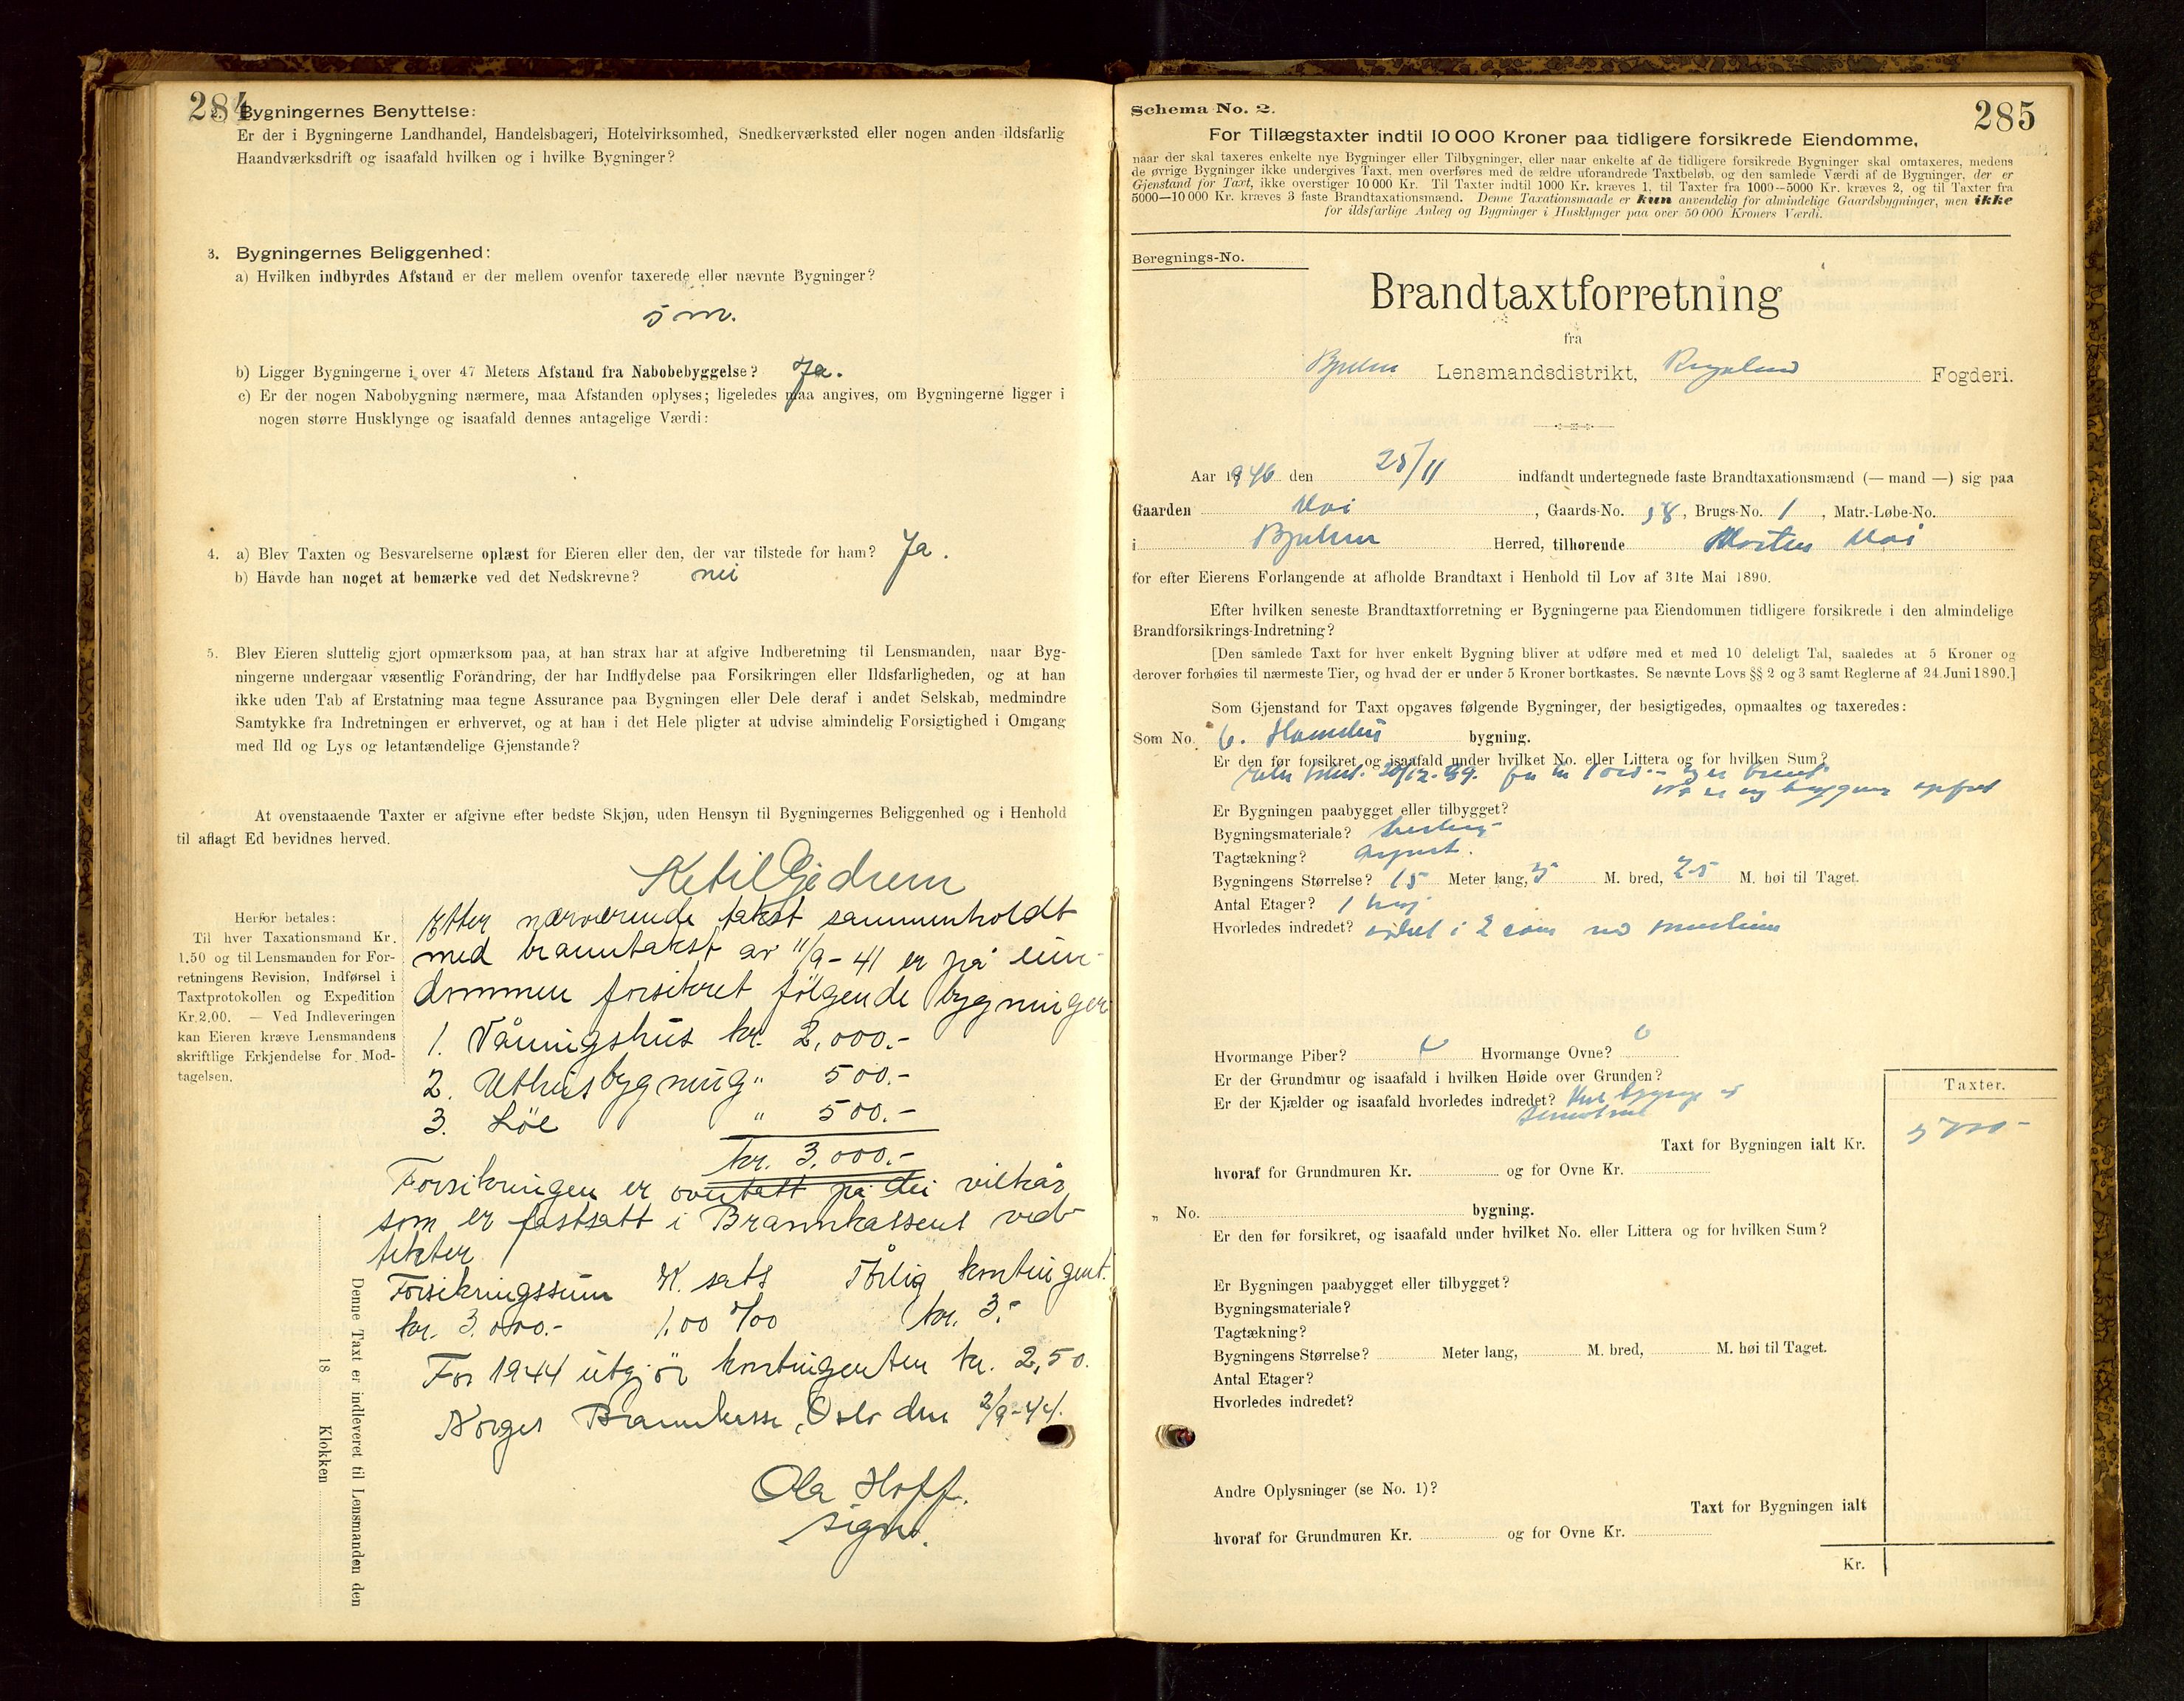 284
2. Bygningernes Benyttelse:
Er der i Bygningerne Landhandel, Handelsbageri, Hotelvirksomhed, Snedkerværksted eller nogen anden ildsfarlig
Haandværksdrift og isaafald hvilken og i hvilke Bygninger?
3. Bygningernes Beliggenhed:
a) Hvilken indbyrdes Afstand er der mellem ovenfor taxerede eller nævnte Bygninger?
5 m.
b) Ligger Bygningerne i over 47 Meters Afstand fra Nabobebyggelse? Ja.
c) Er der nogen Nabobygning nærmere, maa Afstanden oplyses; ligeledes maa angives, om Bygningerne ligger i
nogen større Husklynge og isaafald dennes antagelige Værdi:
4. a) Blev Taxten og Besvarelserne oplæst for Eieren eller den, der var tilstede for ham? Ja.
b) Havde han noget at bemærke ved det Nedskrevne? nei
5. Blev Eieren sluttelig gjort opmærksom paa, at han strax har at afgive Indberetning til Lensmanden, naar Byg-
ningerne undergaar væsentlig Forandring, der har Indflydelse paa Forsikringen eller Ildsfarligheden, og at han
ikke uden Tab af Erstatning maa tegne Assurance paa Bygningen eller Dele deraf i andet Selskab, medmindre
Samtykke fra Indretningen er erhvervet, og at han i det Hele pligter at udvise almindelig Forsigtighed i Omgang
med Ild og Lys og letantændelige Gjenstande?
At ovenstaaende Taxter er afgivne efter bedste Skjøn, uden Hensyn til Bygningernes Beliggenhed og i Henhold
til aflagt Ed bevidnes herved.
Ketil Gjedrem
Herfor betales:
Til hver Taxationsmand Kr.
1.50 og til Lensmanden for For-
retningens Revision, Indførsel i
Taxtprotokollen og Expedition
Kr. 2.00. — Ved Indleveringen
kan Eieren kræve Lensmandens
skriftlige Erkjendelse for Mod-
tagelsen.
Etter nærværende takst sammenholdt
med branntakst av 11/9-41 er på eien-
dommen forsikret følgende bygninger
1. Våningshus kr. 2,000.-
2. Uthusbygning " 500.-
3. Löe " 500.-
kr. 3.000.-
Forsikringen er overtatt på dei vilkår
som er fastsatt i Brannkassens ved-
tekter
Forsikringssum K. sats Årlig kontingent.
kr. 3.000.- 1,00 ‰ kr. 3.-
For 1944 utgjör kontingenten kr. 2,50.
Norges Brannkasse, Oslo den 2/9-44.
Ola Hoff.
sign.
Denne Taxt er indleveret til Lensmanden den
18 Klokken
285
Schema No. 2.
For Tillægstaxter indtil 10 000 Kroner paa tidligere forsikrede Eiendomme,
naar der skal taxeres enkelte nye Bygninger eller Tilbygninger, eller naar enkelte af de tidligere forsikrede Bygninger skal omtaxeres, medens
de øvrige Bygninger ikke undergives Taxt, men overføres med de ældre uforandrede Taxtbeløb, og den samlede Værdi af de Bygninger, der er
Gjenstand for Taxt, ikke overstiger 10 000 Kr. Til Taxter indtil 1000 Kr. kræves 1, til Taxter fra 1000—5000 Kr. kræves 2, og til Taxter fra
5000—10 000 Kr. kræves 3 faste Brandtaxationsmænd. Denne Taxationsmaade er kun anvendelig for almindelige Gaardsbygninger, men ikke
for ildsfarlige Anlæg og Bygninger i Husklynger paa over 50 000 Kroners Værdi.
Beregnings-No.
Brandtaxtforretning
fra
Lensmandsdistrikt, Rogaland Fogderi.
Aar 1946 den 28/11 indfandt undertegnede faste Brandtaxationsmænd (— mand —) sig paa
Gaarden , Gaards-No. 58, Brugs-No. 1 , Matr.-Løbe-No.
i Herred, tilhørende Morten
for efter Eierens Forlangende at afholde Brandtaxt i Henhold til Lov af 31te Mai 1890.
Efter hvilken seneste Brandtaxtforretning er Bygningerne paa Eiendommen tidligere forsikrede i den almindelige
Brandforsikrings-Indretning?
[Den samlede Taxt for hver enkelt Bygning bliver at udføre med et med 10 deleligt Tal, saaledes at 5 Kroner og
derover forhøies til nærmeste Tier, og hvad der er under 5 Kroner bortkastes. Se nævnte Lovs §§ 2 og 3 samt Reglerne af 24. Juni 1890.]
Som Gjenstand for Taxt opgaves følgende Bygninger, der besigtigedes, opmaaltes og taxeredes:
Som No. 6. bygning.
Er den før forsikret og isaafald under hvilket No. eller Littera og for hvilken Sum?
Er Bygningen paabygget eller tilbygget?
Bygningsmateriale?
Tagtækning?
Bygningens Størrelse? 15 Meter lang, 5 M. bred, 2.5 M. høi til Taget.
Antal Etager? 1
Hvorledes indredet?
Hvormange Piber? Hvormange Ovne? 0
Er der Grundmur og isaafald i hvilken Høide over Grunden?
Er der Kjælder og isaafald hvorledes indredet?
Taxter.
Taxt for Bygningen ialt Kr.
hvoraf for Grundmuren Kr. og for Ovne Kr.
„ No. bygning.
Er den før forsikret, og isaafald under hvilket No. eller Littera og for hvilken Sum?
Er Bygningen paabygget eller tilbygget?
Bygningsmateriale?
Tagtækning?
Bygningens Størrelse? Meter lang, M. bred, M. høi til Taget.
Antal Etager?
Hvorledes indredet?
Andre Oplysninger (se No. 1)?
Taxt for Bygningen ialt
hvoraf for Grundmuren Kr. og for Ovne Kr.
Kr.